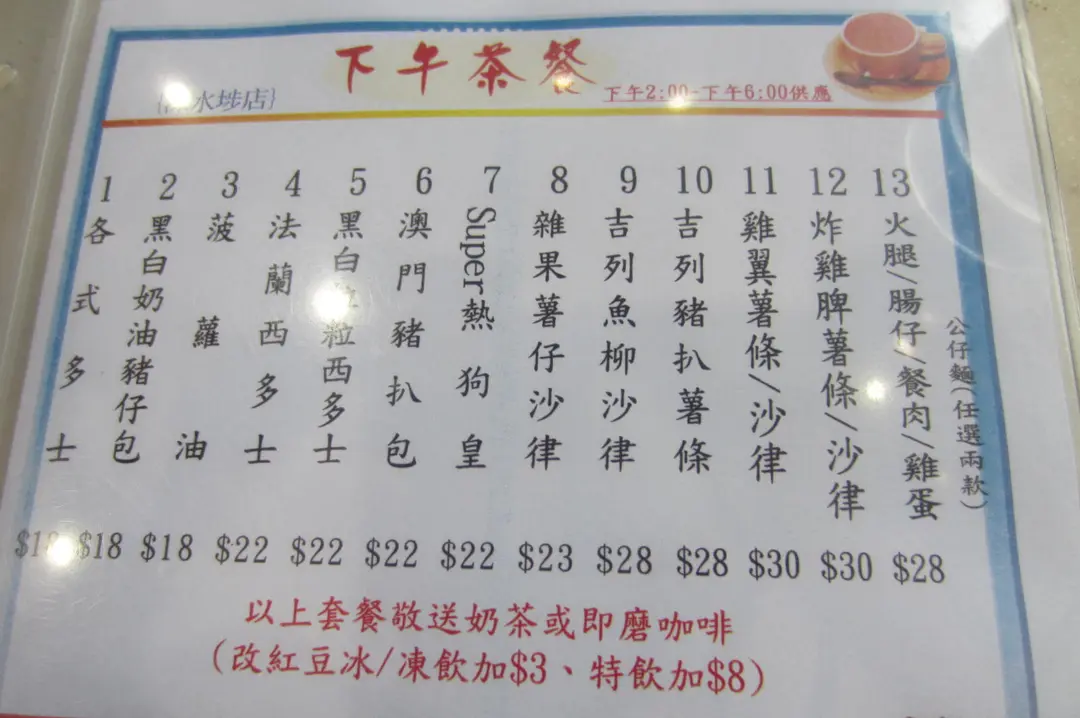 下午茶餐
水埗店}
下午2:00-下午6:00供應
1 各式多士
2 黑白奶油豬仔包 $18
3 菠蘿油 $18
4 法蘭西多士 $22
5 黑白粒西多士 $22
6 澳門豬扒包 $22
7 Super熱狗皇 $22
8 雜果薯仔沙律 $23
9 吉列魚柳沙律 $28
10 吉列豬扒薯條 $28
11 雞翼薯條/沙律 $30
12 炸雞脾薯條/沙律 $30
13 火腿/腸仔/餐肉/雞蛋 公仔麵(任選兩款) $28
以上套餐敬送奶茶或即磨咖啡
(改紅豆冰/凍飲加$3、特飲加$8)